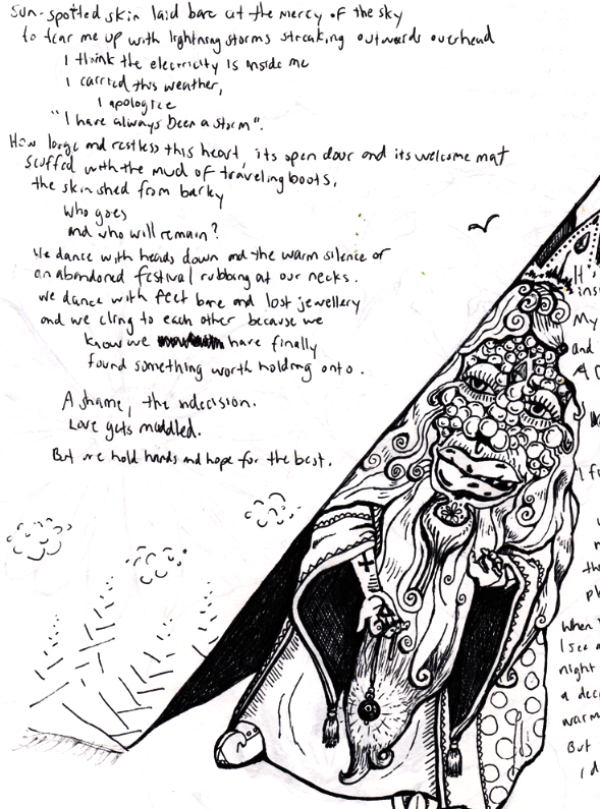 Sun-spotted skin laid bare at the mercy of the sky
to tear me up with lightning storms streaking outwards overhead
I think the electricity is inside me
I carried this weather,
I apologize
"I have always been a storm".
How large and restless this heart, its open door and its welcome mat
scuffed with the mud of traveling boots.
the skin shed from barky
who goes
and who will remain?
We dance with heads down and the warm silence of
an abandoned festival rubbing at our necks.
we dance with feet bare and lost jewellery
and we cling to each other because we
know we have finally
found something worth holding onto.
A shame, the indecision.
Love gets muddled.
But we hold hands and hope for the best.
My
and
I
When
I see
night
a
warm
But
I d